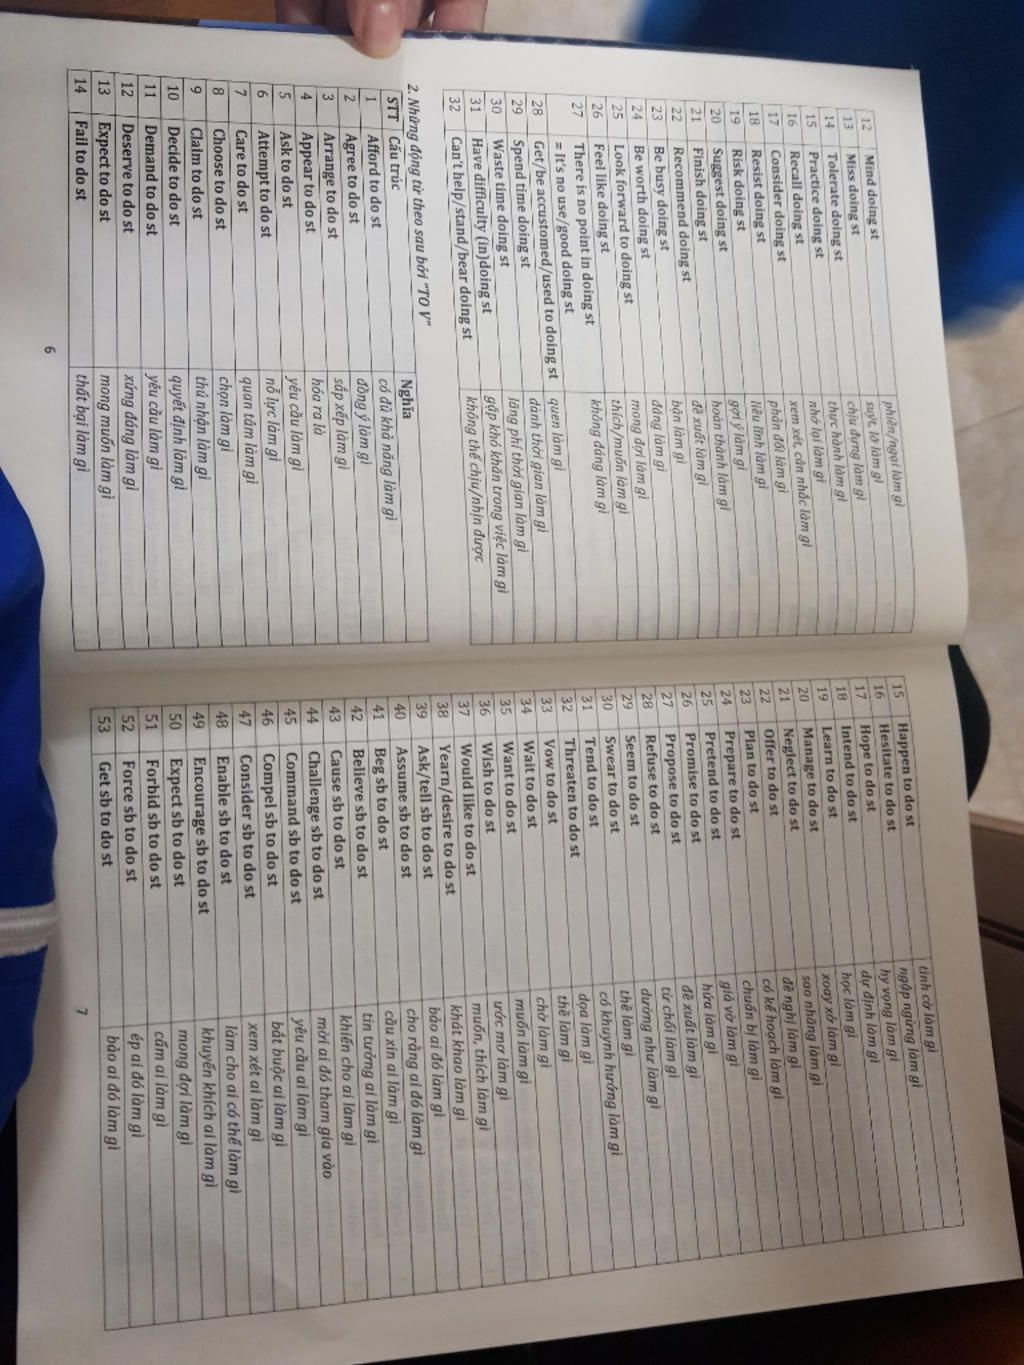 12 Mind doing st phiền/ngại làm gì
13 Miss doing st suýt, lỡ làm gì
14 Tolerate doing st chịu đựng làm gì
15 Practice doing st thực hành làm gì
16 Recall doing st nhớ lại làm gì
17 Consider doing st xem xét, cân nhắc làm gì
18 Resist doing st phản đối làm gì
19 Risk doing st liều lĩnh làm gì
20 Suggest doing st gợi ý làm gì
21 Finish doing st hoàn thành làm gì
22 Recommend doing st đề xuất làm gì
23 Be busy doing st bận làm gì
24 Be worth doing st đáng làm gì
25 Look forward to doing st mong đợi làm gì
26 Feel like doing st thích/muốn làm gì
27 There is no point in doing st không đáng làm gì
= It's no use/good doing st
28 Get/be accustomed/used to doing st quen làm gì
29 Spend time doing st dành thời gian làm gì
30 Waste time doing st lãng phí thời gian làm gì
31 Have difficulty (in)doing st gặp khó khăn trong việc làm gì
32 Can't help/stand/bear doing st không thể chịu/nhịn được
2. Những động từ theo sau bởi "TO V"
STT Cấu trúc Nghĩa
1 Afford to do st có đủ khả năng làm gì
2 Agree to do st đồng ý làm gì
3 Arrange to do st sắp xếp làm gì
4 Appear to do st hóa ra là
5 Ask to do st yêu cầu làm gì
6 Attempt to do st nỗ lực làm gì
7 Care to do st quan tâm làm gì
8 Choose to do st chọn làm gì
9 Claim to do st thú nhận làm gì
10 Decide to do st quyết định làm gì
11 Demand to do st yêu cầu làm gì
12 Deserve to do st xứng đáng làm gì
13 Expect to do st mong muốn làm gì
14 Fail to do st thất bại làm gì
6
15 Happen to do st tình cờ làm gì
16 Hesitate to do st ngập ngừng làm gì
17 Hope to do st hy vọng làm gì
18 Intend to do st dự định làm gì
19 Learn to do st học làm gì
20 Manage to do st xoay xở làm gì
21 Neglect to do st sao nhãng làm gì
22 Offer to do st đề nghị làm gì
23 Plan to do st có kế hoạch làm gì
24 Prepare to do st chuẩn bị làm gì
25 Pretend to do st giả vờ làm gì
26 Promise to do st hứa làm gì
27 Propose to do st đề xuất làm gì
28 Refuse to do st từ chối làm gì
29 Seem to do st dường như làm gì
30 Swear to do st thề làm gì
31 Tend to do st có khuynh hướng làm gì
32 Threaten to do st dọa làm gì
33 Vow to do st thề làm gì
34 Wait to do st chờ làm gì
35 Want to do st muốn làm gì
36 Wish to do st ước mơ làm gì
37 Would like to do st muốn, thích làm gì
38 Yearn/desire to do st khát khao làm gì
39 Ask/tell sb to do st bảo ai đó làm gì
40 Assume sb to do st cho rằng ai đó làm gì
41 Beg sb to do st cầu xin ai làm gì
42 Believe sb to do st tin tưởng ai làm gì
43 Cause sb to do st khiến cho ai làm gì
44 Challenge sb to do st mời ai đó tham gia vào
45 Command sb to do st yêu cầu ai làm gì
46 Compel sb to do st bắt buộc ai làm gì
47 Consider sb to do st xem xét ai làm gì
48 Enable sb to do st làm cho ai có thể làm gì
49 Encourage sb to do st khuyến khích ai làm gì
50 Expect sb to do st mong đợi làm gì
51 Forbid sb to do st cấm ai làm gì
52 Force sb to do st ép ai đó làm gì
53 Get sb to do st bảo ai đó làm gì
7